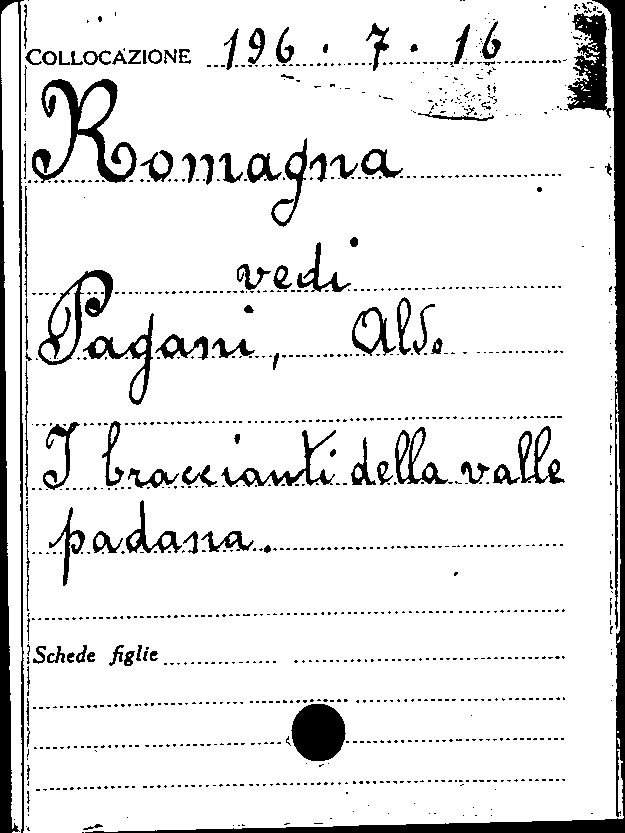 COLLOCAZIONE 196.7.16
Romagna
vedi
Pagani, Aldo
I braccianti della valle
padana.
Schede figlie